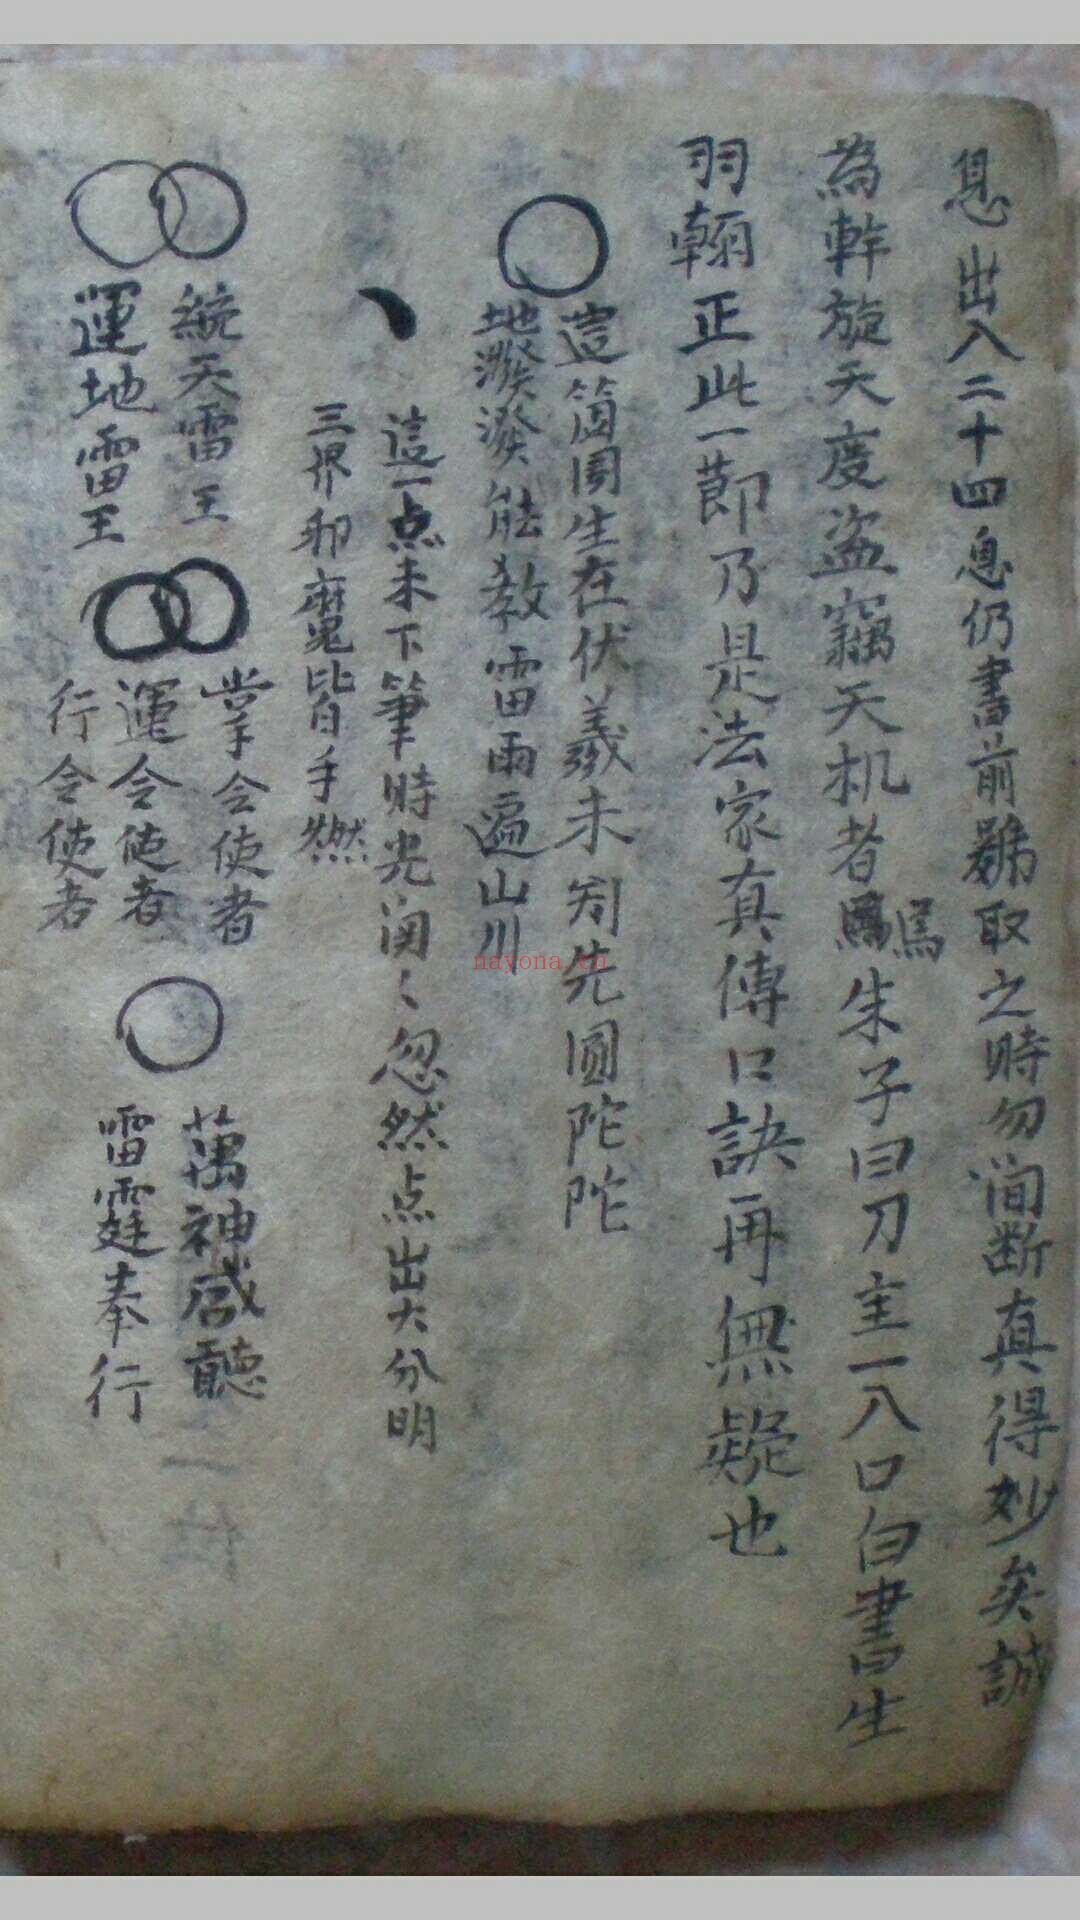 息出入二十四息仍書前號取之時勿間断真得妙矣誠
為斡旋天度盗竊天机者焉朱子曰刀圭一入口白書生
羽翰正此一節乃是法家真傳口訣再無疑也
這箇圏生在伏羲未剖先圓陀陀
地潑潑能教雷雨遍山川
這一点未下筆時光閃〻忽然点出大分明
三界邪魔皆手燃
統天雷王
運地雷王
掌令使者
運令使者
行令使者
萬神咸聽
雷霆奉行
nayona.cn